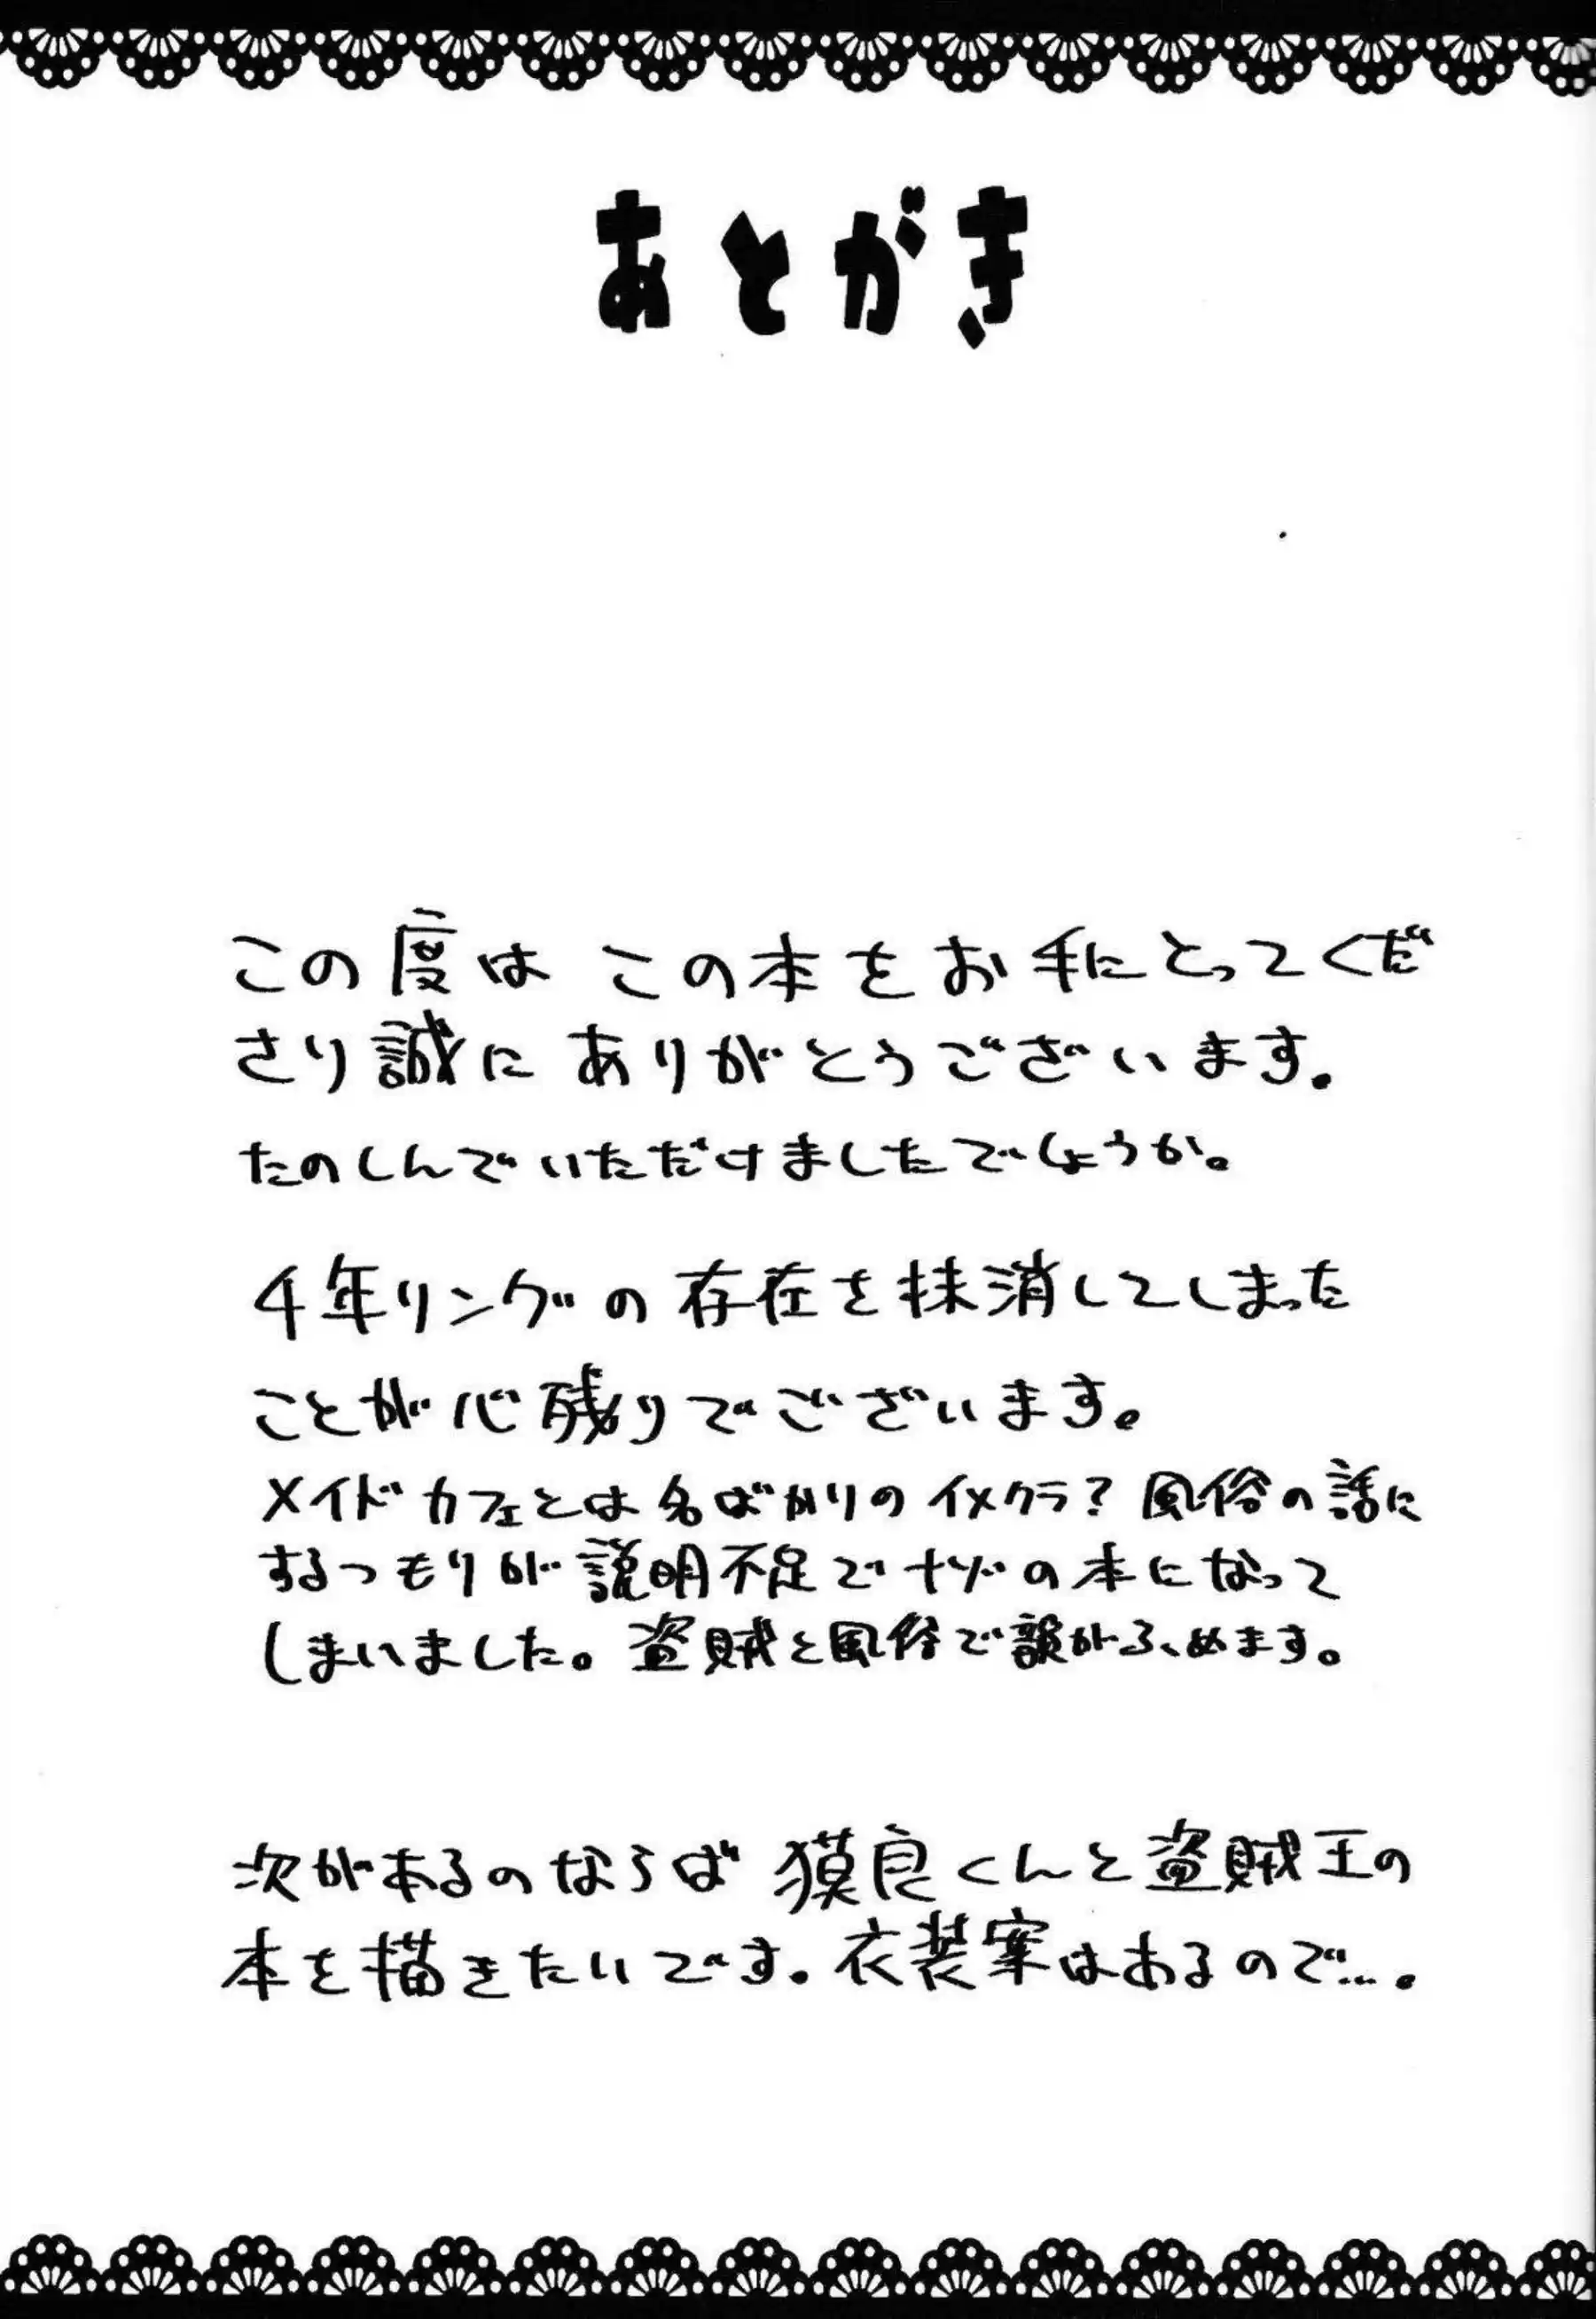 あとがき
この度は この本をお手にとってくだ
さり誠に ありがとうございます。
たのしんでいただけましたでしょうか。
4年リングの存在を抹消してしまった
ことが心残りでございます。
メイドカフェとは名ばかりのイメクラ?風俗の話に
するつもりが説明不足でナゾの本になって
しまいました。盗賊と風俗で韻がふめます。
次があるのならば 獏良くんと盗賊王の
本を描きたいです。衣装案はあるので…。